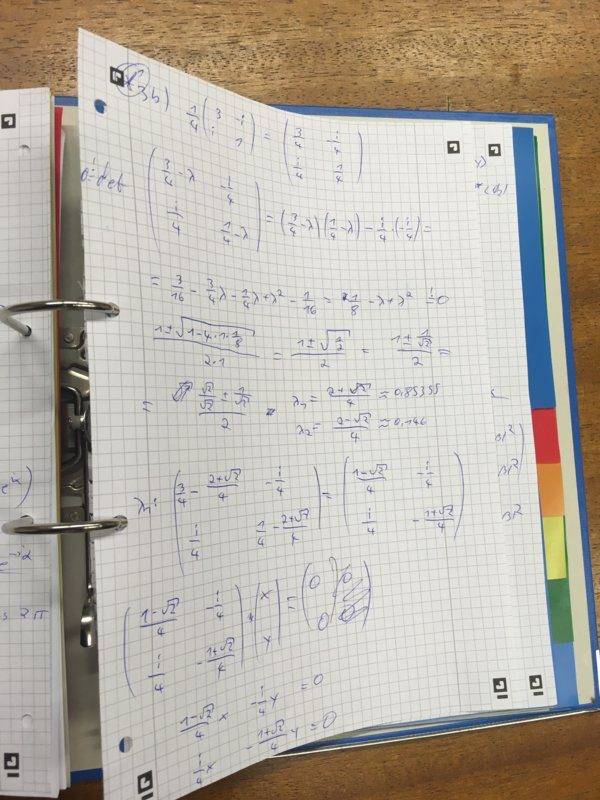 3b) 1/4 ( 3 -i ; i 1 ) = ( 3/4 -i/4 ; i/4 1/4 )
0=det ( 3/4-λ i/4 ; i/4 1/4-λ ) = (3/4-λ)(1/4-λ) - i/4·(-i/4) =
= 3/16 - 3/4λ - 1/4λ + λ² - 1/16 = 1/8 - λ + λ² = 0
(1±√(1-4·1·1/8))/(2·1) = (1±√(1/2))/2 = (1±1/√2)/2 =
= (√2/√2 ± 1/√2)/2 λ₁ = (2+√2)/4 ≈ 0,85355
λ₂ = (2-√2)/4 ≈ 0,146
λ₁: ( 3/4 - (2+√2)/4 -i/4 ; i/4 1/4 - (2+√2)/4 ) = ( (1-√2)/4 -i/4 ; i/4 -(1+√2)/4 )
( (1-√2)/4 -i/4 ; i/4 -(1+√2)/4 ) * ( x ; y ) = ( 0 ; 0 )
(1-√2)/4 x - i/4 y = 0
i/4 x - (1+√2)/4 y = 0